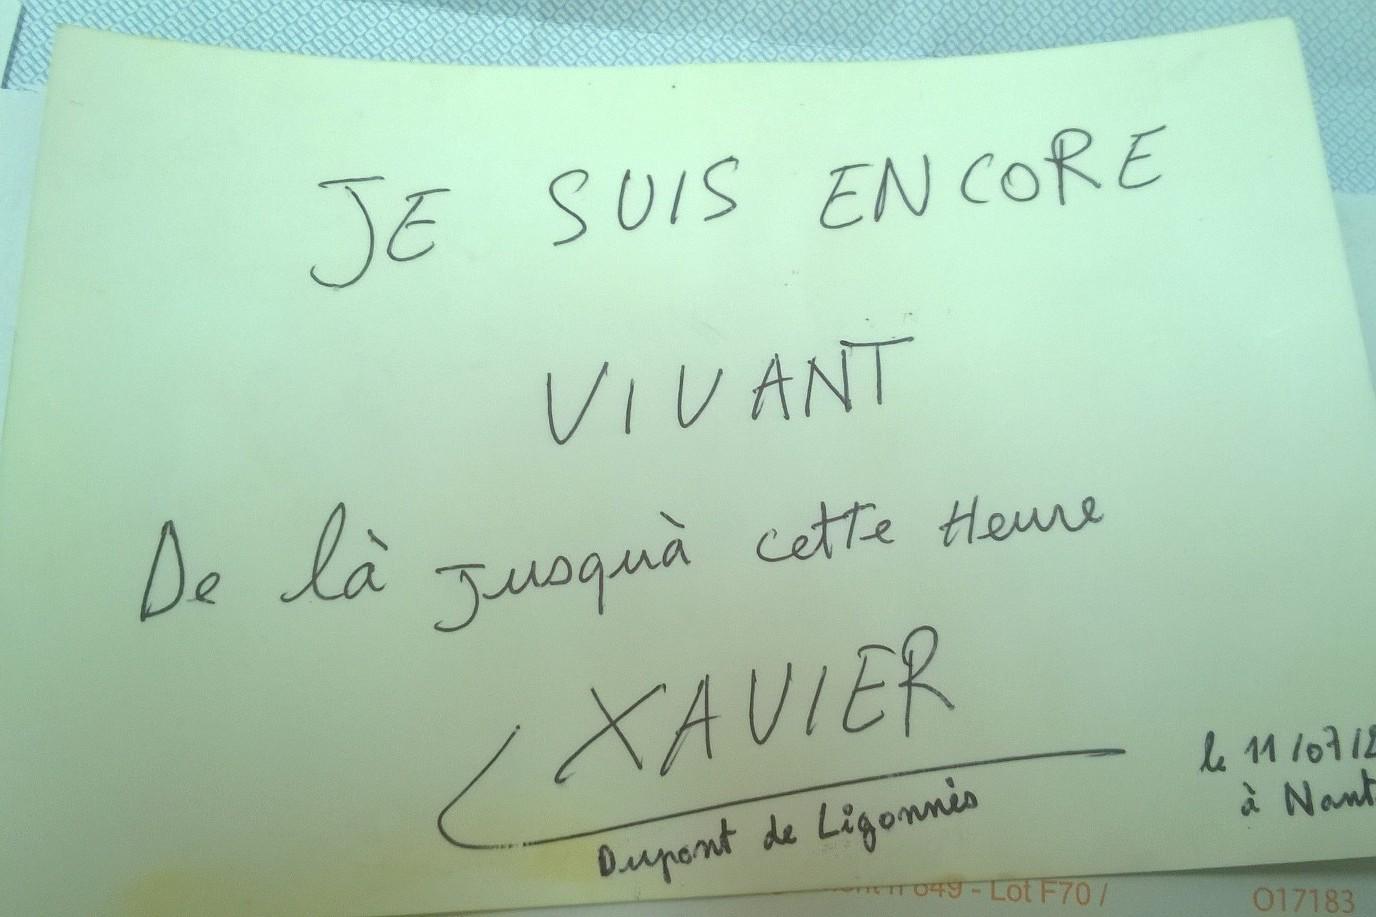 JE SUIS ENCORE
VIVANT
De là jusquà cette Heure
XAVIER
Dupont de Ligonnès
le 11/07/2
à Nant
649 - Lot F70 /
O17183